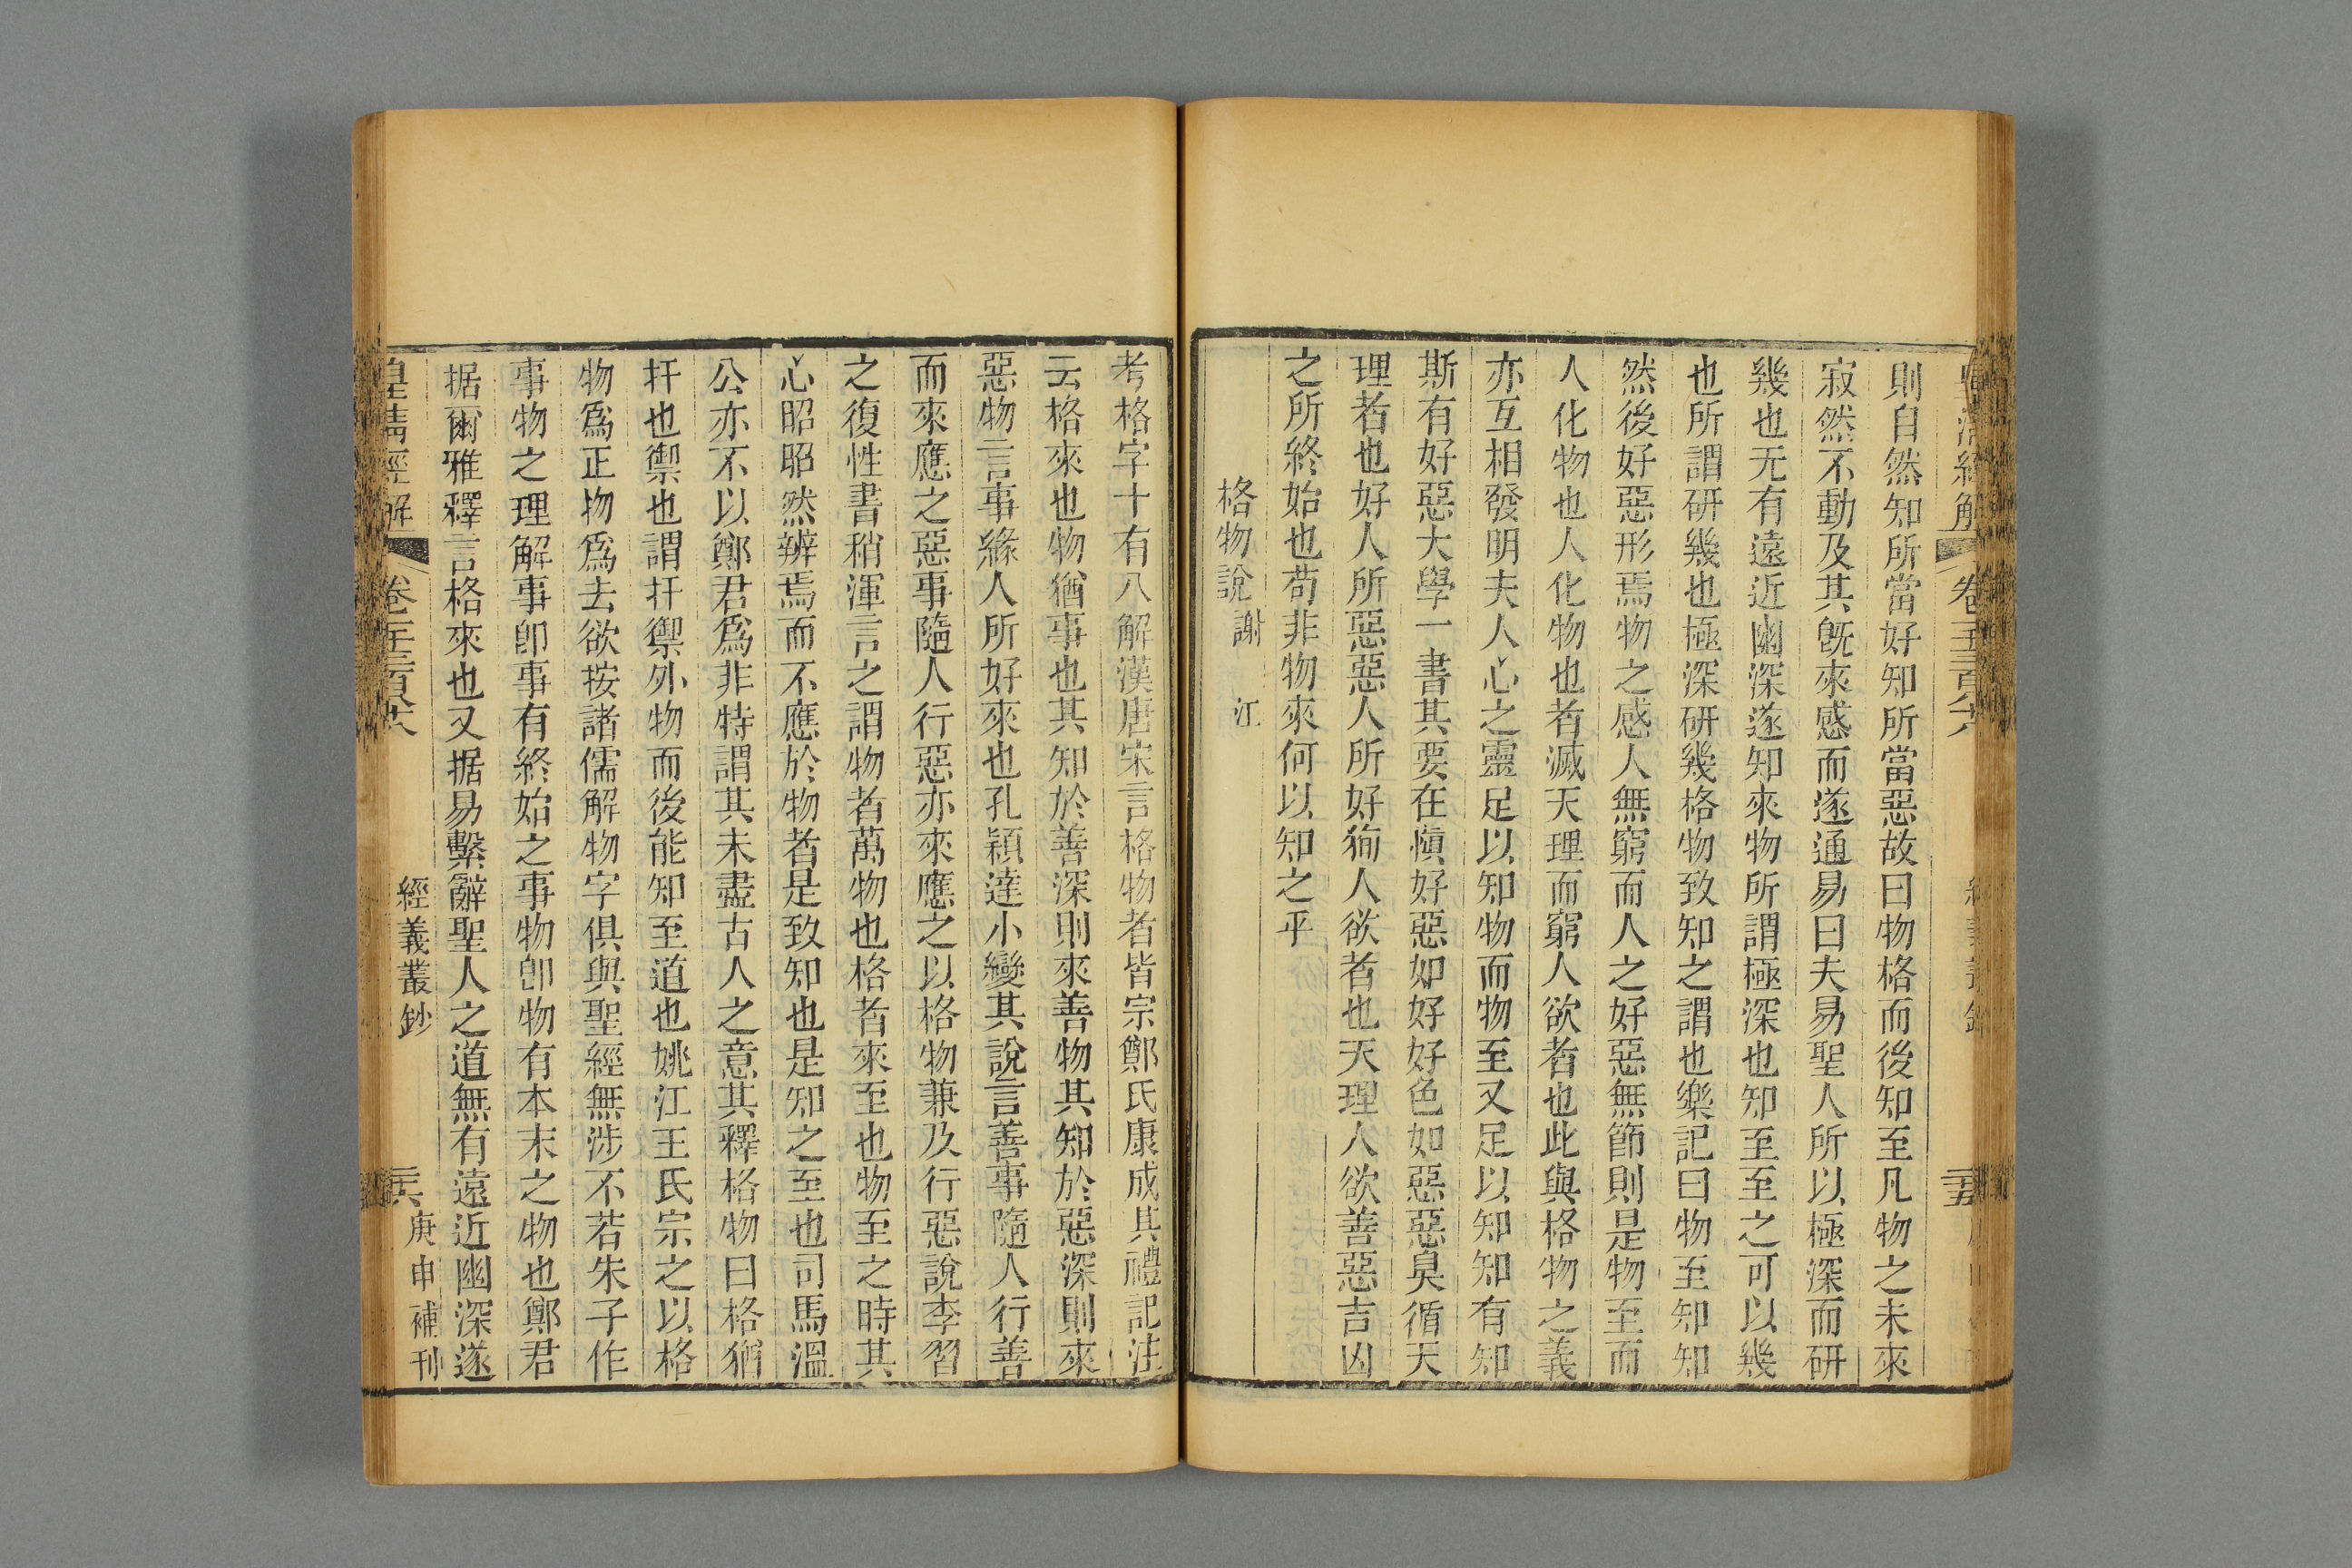 則自然知所當好知所當惡故曰物格而後知至凡物之未來
寂然不動及其旣來感而遂通易曰夫易聖人所以極深而研
幾也无有遠近幽深遂知來物所謂極深也知至至之可以幾
也所謂研幾也極深研幾格物致知之謂也樂記曰物至知知
然後好惡形焉物之感人無窮而人之好惡無節則是物至而
人化物也人化物也者滅天理而窮人欲者也此與格物之義
亦互相發明夫人心之靈足以知物而物至又足以知知有知
斯有好惡大學一書其要在愼好惡如好好色如惡惡臭循天
理者也好人所惡惡人所好狥人欲者也天理人欲善惡吉凶
之所終始也苟非物來何以知之乎
格物說 謝江
考格字十有八解漢唐宋言格物者皆宗鄭氏康成其禮記注
云格來也物猶事也其知於善深則來善物其知於惡深則來
惡物言事緣人所好來也孔穎達小變其說言善事隨人行善
而來應之惡事隨人行惡亦來應之以格物兼及行惡說李習
之復性書稍渾言之謂物者萬物也格者來至也物至之時其
心昭昭然辨焉而不應於物者是致知也是知之至也司馬溫
公亦不以鄭君爲非特謂其未盡古人之意其釋格物曰格猶
扞也禦也謂扞禦外物而後能知至道也姚江王氏宗之以格
物爲正物爲去欲按諸儒解物字俱與聖經無涉不若朱子作
事物之理解事卽事有終始之事物卽物有本末之物也鄭君
据爾雅釋言格來也又据易繫辭聖人之道無有遠近幽深遂
皇淸經解 卷 經義叢鈔 庚申補刊